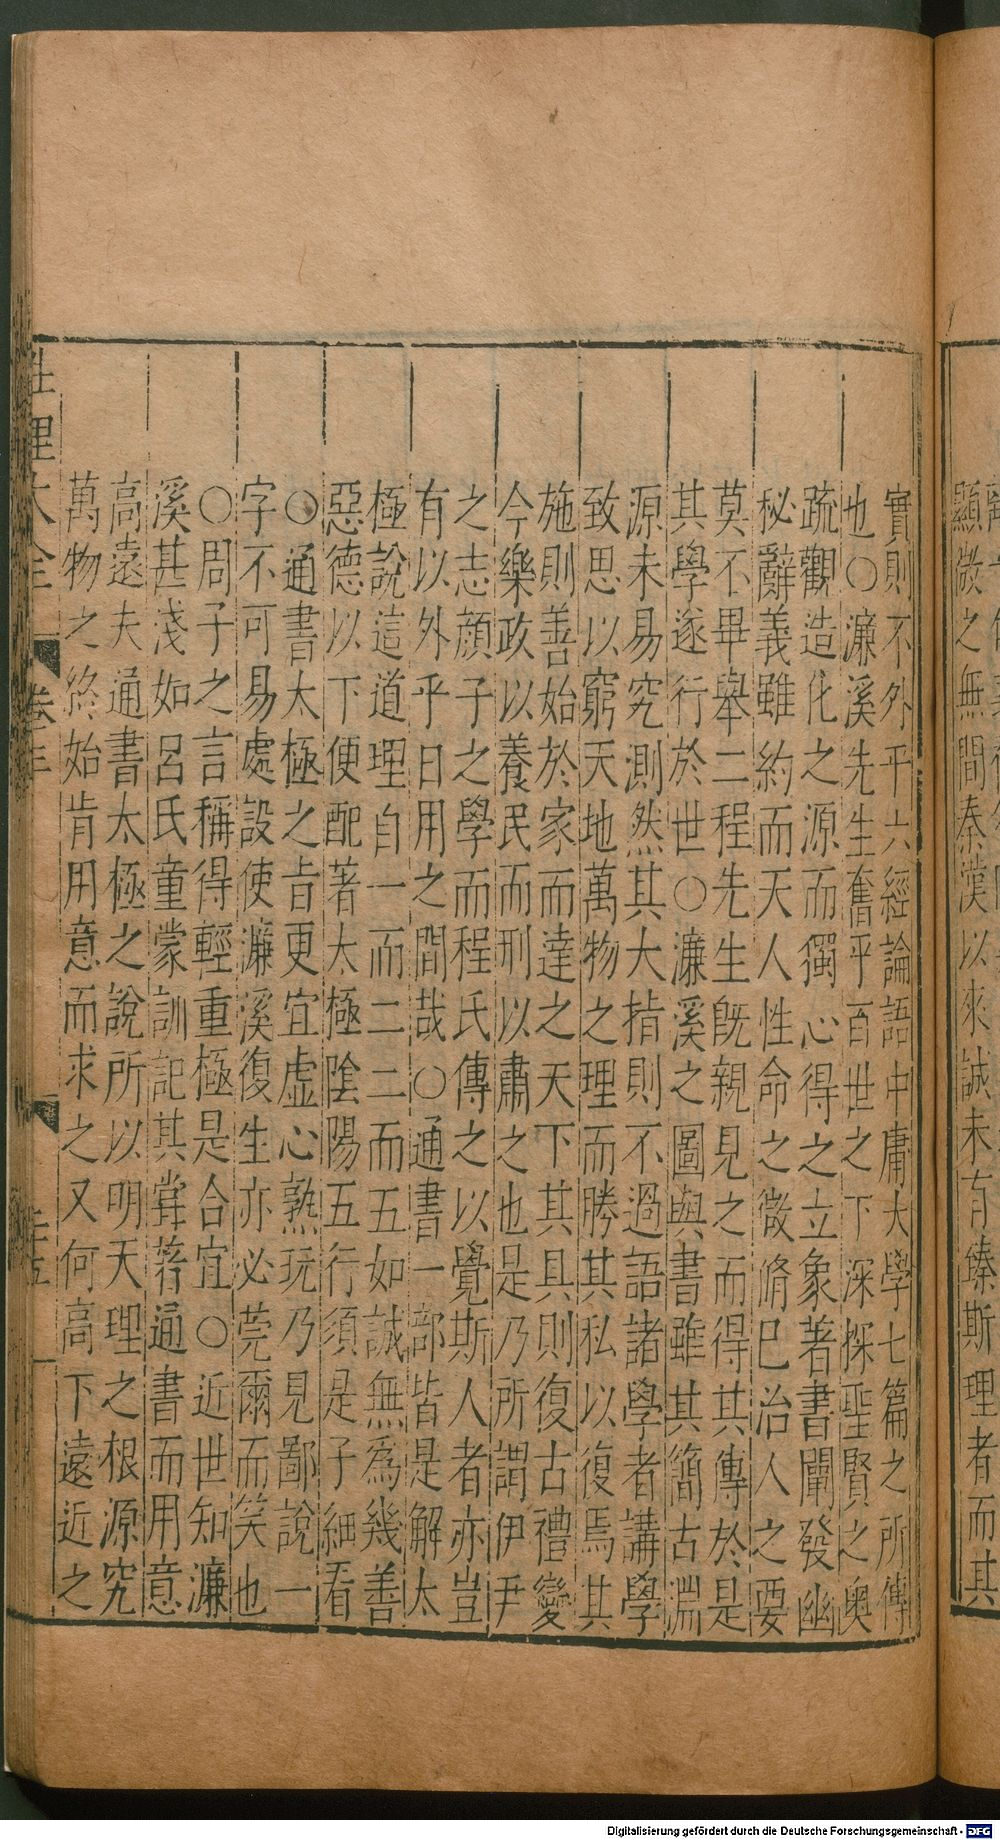 顯微之無間秦漢以來誠未有臻斯理者而其
實則不外乎六經論語中庸大學七篇之所傳
也○濂溪先生奮乎百世之下深探聖賢之奧
疏觀造化之源而獨心得之立象著書闡發幽
秘辭義雖約而天人性命之微脩巳治人之要
莫不畢舉二程先生旣親見之而得其傳於是
其學遂行於世○濂溪之圖與書雖其簡古淵
源未易究測然其大指則不過語諸學者講學
致思以窮天地萬物之理而勝其私以復焉其
施則善始於家而達之天下其具則復古禮變
今樂政以養民而刑以肅之也是乃所謂伊尹
之志顏子之學而程氏傳之以覺斯人者亦豈
有以外乎日用之間哉○通書一部皆是解太
極說這道理自一而二二而五如誠無為幾善
惡德以下便配著太極陰陽五行須是子細看
○通書太極之旨更宜虛心熟玩乃見鄙說一
字不可易處設使濂溪復生亦必莞爾而笑也
○周子之言稱得輕重極是合宜○近世知濂
溪甚淺如呂氏童蒙訓記其嘗著通書而用意
高遠夫通書太極之說所以明天理之根源究
萬物之終始肯用意而求之又何高下遠近之
性理大全 卷三 三十五
Digitalisierung gefördert durch die Deutsche Forschungsgemeinschaft - DFG